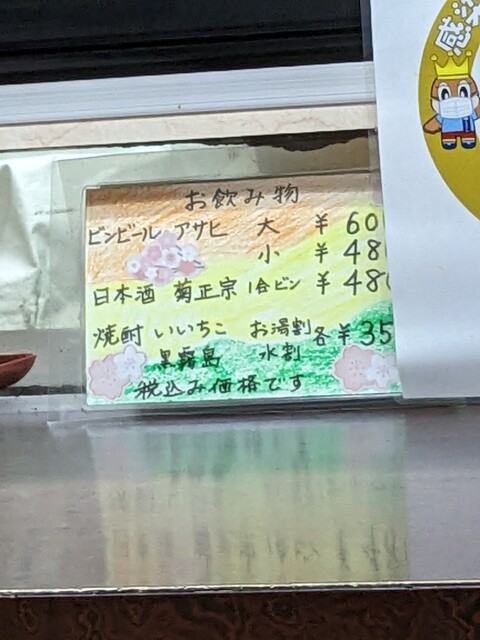 感染
お飲み物
ビンビール アサヒ 大 ¥ 60
小 ¥ 48
日本酒 菊正宗 1合ビン ¥ 480
焼酎 いいちこ お湯割 各¥ 35
黒霧島 水割
税込み価格です